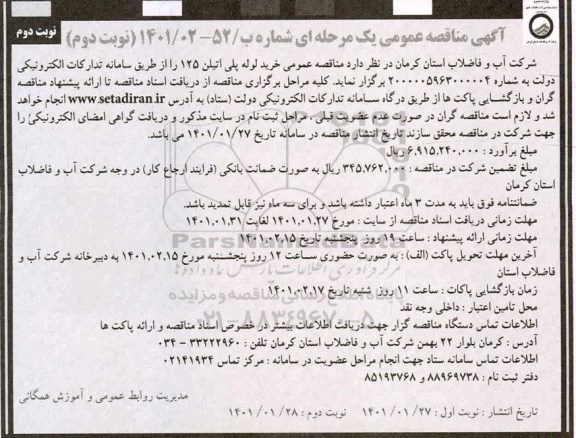 نوبت دوم
آگهی مناقصه عمومی یک مرحله ای شماره ب/۵۲-۱۴۰۱/۰۲ (نوبت دوم)
شرکت آب و فاضلاب استان کرمان در نظر دارد مناقصه عمومی خرید لوله پلی اتیلن ۱۲۵ را از طریق سامانه تدارکات الکترونیکی
دولت به شماره ۲۰۰۰۰۰۵۹۶۳۰۰۰۰۰۴ برگزار نماید. کلیه مراحل برگزاری مناقصه از دریافت اسناد مناقصه تا ارائه پیشنهاد مناقصه
گران و بازگشایی پاکت ها از طریق درگاه سامانه تدارکات الکترونیکی دولت (ستاد) به آدرس www.setadiran.ir انجام خواهد
شد و لازم است مناقصه گران در صورت عدم عضویت قبلی ، مراحل ثبت نام در سایت مذکور و دریافت گواهی امضای الکترونیکی را
جهت شرکت در مناقصه محقق سازند تاریخ انتشار مناقصه در سامانه تاریخ ۱۴۰۱/۰۱/۲۷ می باشد.
مبلغ برآورد : ۶,۹۱۵,۲۴۰,۰۰۰ ریال
مبلغ تضمین شرکت در مناقصه : ۳۴۵,۷۶۲,۰۰۰ ریال به صورت ضمانت بانکی (فرایند ارجاع کار) در وجه شرکت آب و فاضلاب
استان کرمان
ضمانتنامه فوق باید به مدت ۳ ماه اعتبار داشته باشد و برای سه ماه نیز قابل تمدید باشد.
مهلت زمانی دریافت اسناد مناقصه از سایت : مورخ ۱۴۰۱,۰۱,۲۷ لغایت ۱۴۰۱,۰۱,۳۱
مهلت زمانی ارائه پیشنهاد : ساعت ۱۹ روز پنجشنبه تاریخ ۱۴۰۱,۰۲,۱۵
آخرین مهلت تحویل پاکت (الف) : به صورت حضوری ساعت ۱۲ روز پنجشنبه مورخ ۱۴۰۱,۰۲,۱۵ به دبیرخانه شرکت آب و
فاضلاب استان
زمان بازگشایی پاکات : ساعت ۱۱ روز شنبه تاریخ ۱۴۰۱,۰۲,۱۷
محل تامین اعتبار : داخلی وجه نقد
اطلاعات تماس دستگاه مناقصه گزار جهت دریافت اطلاعات بیشتر در خصوص اسناد مناقصه و ارائه پاکت ها
آدرس : کرمان بلوار ۲۲ بهمن شرکت آب و فاضلاب استان کرمان تلفن : ۳۳۲۲۲۹۶۰ - ۰۳۴
اطلاعات تماس سامانه ستاد جهت انجام مراحل عضویت در سامانه : مرکز تماس ۰۲۱۴۱۹۳۴
دفتر ثبت نام : ۸۸۹۶۹۷۳۸ و ۸۵۱۹۳۷۶۸
مدیریت روابط عمومی و آموزش همگانی
تاریخ انتشار : نوبت اول : ۲۷/ ۰۱/ ۱۴۰۱ نوبت دوم : ۲۸/ ۰۱/ ۱۴۰۱